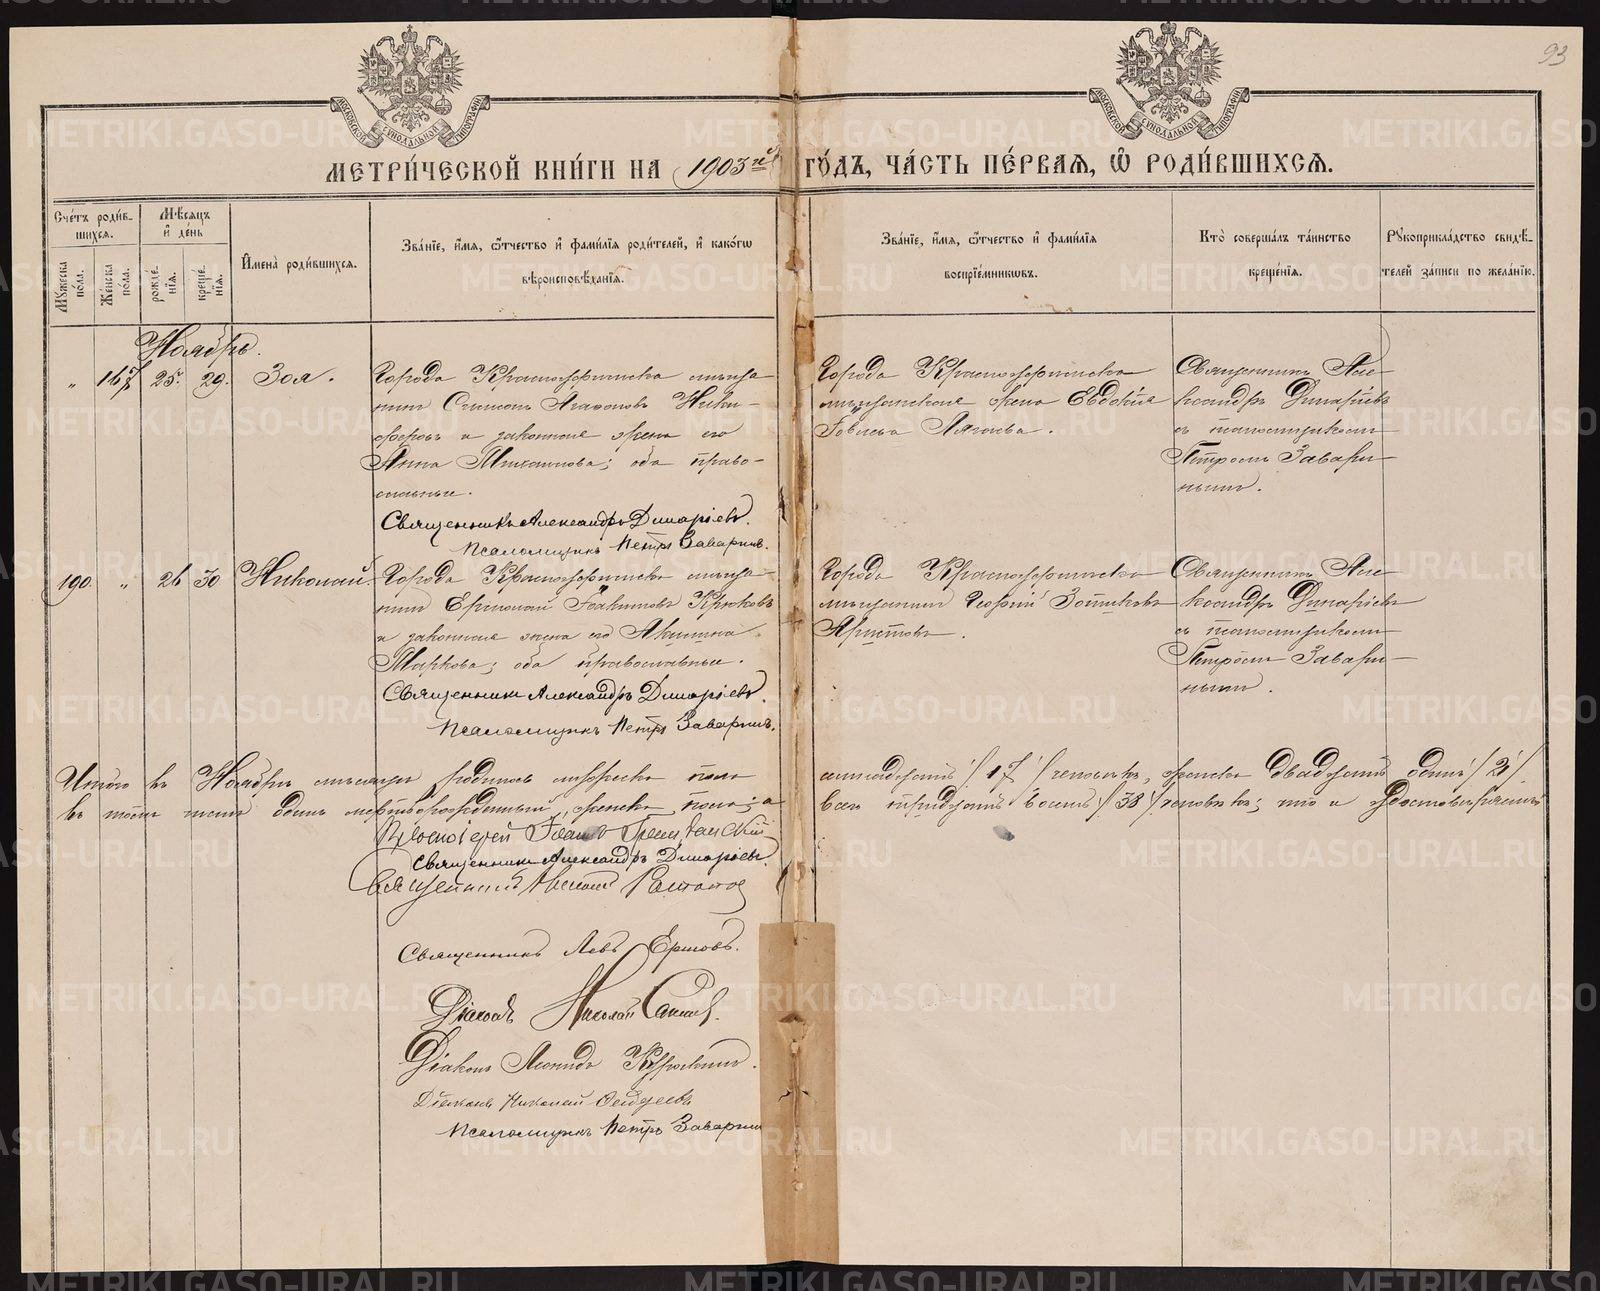 93
МОСКОВСКОЙ СѴНОДАЛЬНОЙ ТИПОГРАФІИ
МОСКОВСКОЙ СѴНОДАЛЬНОЙ ТИПОГРАФІИ
МЕТРИ́ЧЕСКОЙ КНИ́ГИ НА 1903й ГО́ДЪ, ЧА́СТЬ ПЕ́РВАЯ, Ѡ҆ РОДИ́ВШИХСЯ.
Сче́тъ роди́в-
шихся.
Мꙋжеска по́ла.
Же́нска по́ла.
Мѣ́сяцъ
и҆ де́нь
рожде́-
нїѧ.
креще́-
нїѧ.
И҆мена̀ роди́вшихся.
Зва́нїе, и҆́мѧ, ѻ҆́тчество и҆ фами́лїѧ роди́телей, и҆ како́гѡ
вѣроисповѣ́данїѧ.
Зва́нїе, и҆́мѧ, ѻ҆́тчество и҆ фами́лїѧ
воспрїе́мникѡвъ.
Кто̀ соверша́лъ та́инство
креще́нїѧ.
Рꙋкоприкла́дство свидѣ́-
телей за́писи по жела́нїю.
Ноябрь.
„ 167 25. 29. Зоя.
Города Красноуфимска мѣща-
нинъ Симеонъ Агафоновъ Ники-
форовъ и законная жена его
Анна Михаилова; оба право-
славные.
Священникъ Александръ Динаріевъ.
Псаломщикъ Петръ Заваринъ.
Города Красноуфимска
мѣщанская жена Евдокія
Іовлева Лягаева.
Священникъ Але-
ксандръ Динаріевъ
съ псаломщикомъ
Петромъ Завари-
нымъ.
190. „ 26 30 Николай.
Города Красноуфимска мѣща-
нинъ Ермолай Іоакимовъ Крюковъ
и законная жена его Акилина
Маркова; оба православные.
Священникъ Александръ Динаріевъ.
Псаломщикъ Петръ Заваринъ.
Города Красноуфимска
мѣщанинъ Георгій Зотиковъ
Аристовъ.
Священникъ Але-
ксандръ Динаріевъ
съ псаломщикомъ
Петромъ Завари-
нымъ.
Итого въ Ноябрѣ мѣсяцѣ родилось мужеска пола семнадцать /17/ человѣкъ, женска двадцать одинъ /21/
въ томъ числѣ одинъ мертворожденный, женска пола; а всего тридцать восемь /38/ человѣкъ; что и удостовѣряемъ
Протоіерей Іоаннъ
Священникъ Александръ Динаріевъ.
Священникъ
Священникъ Левъ Ершовъ.
Діаконъ Николай
Діаконъ Леонидъ
Діаконъ Николай Ѳедѣевъ
Псаломщикъ Петръ Заваринъ
METRIKI.GASO-URAL.RU